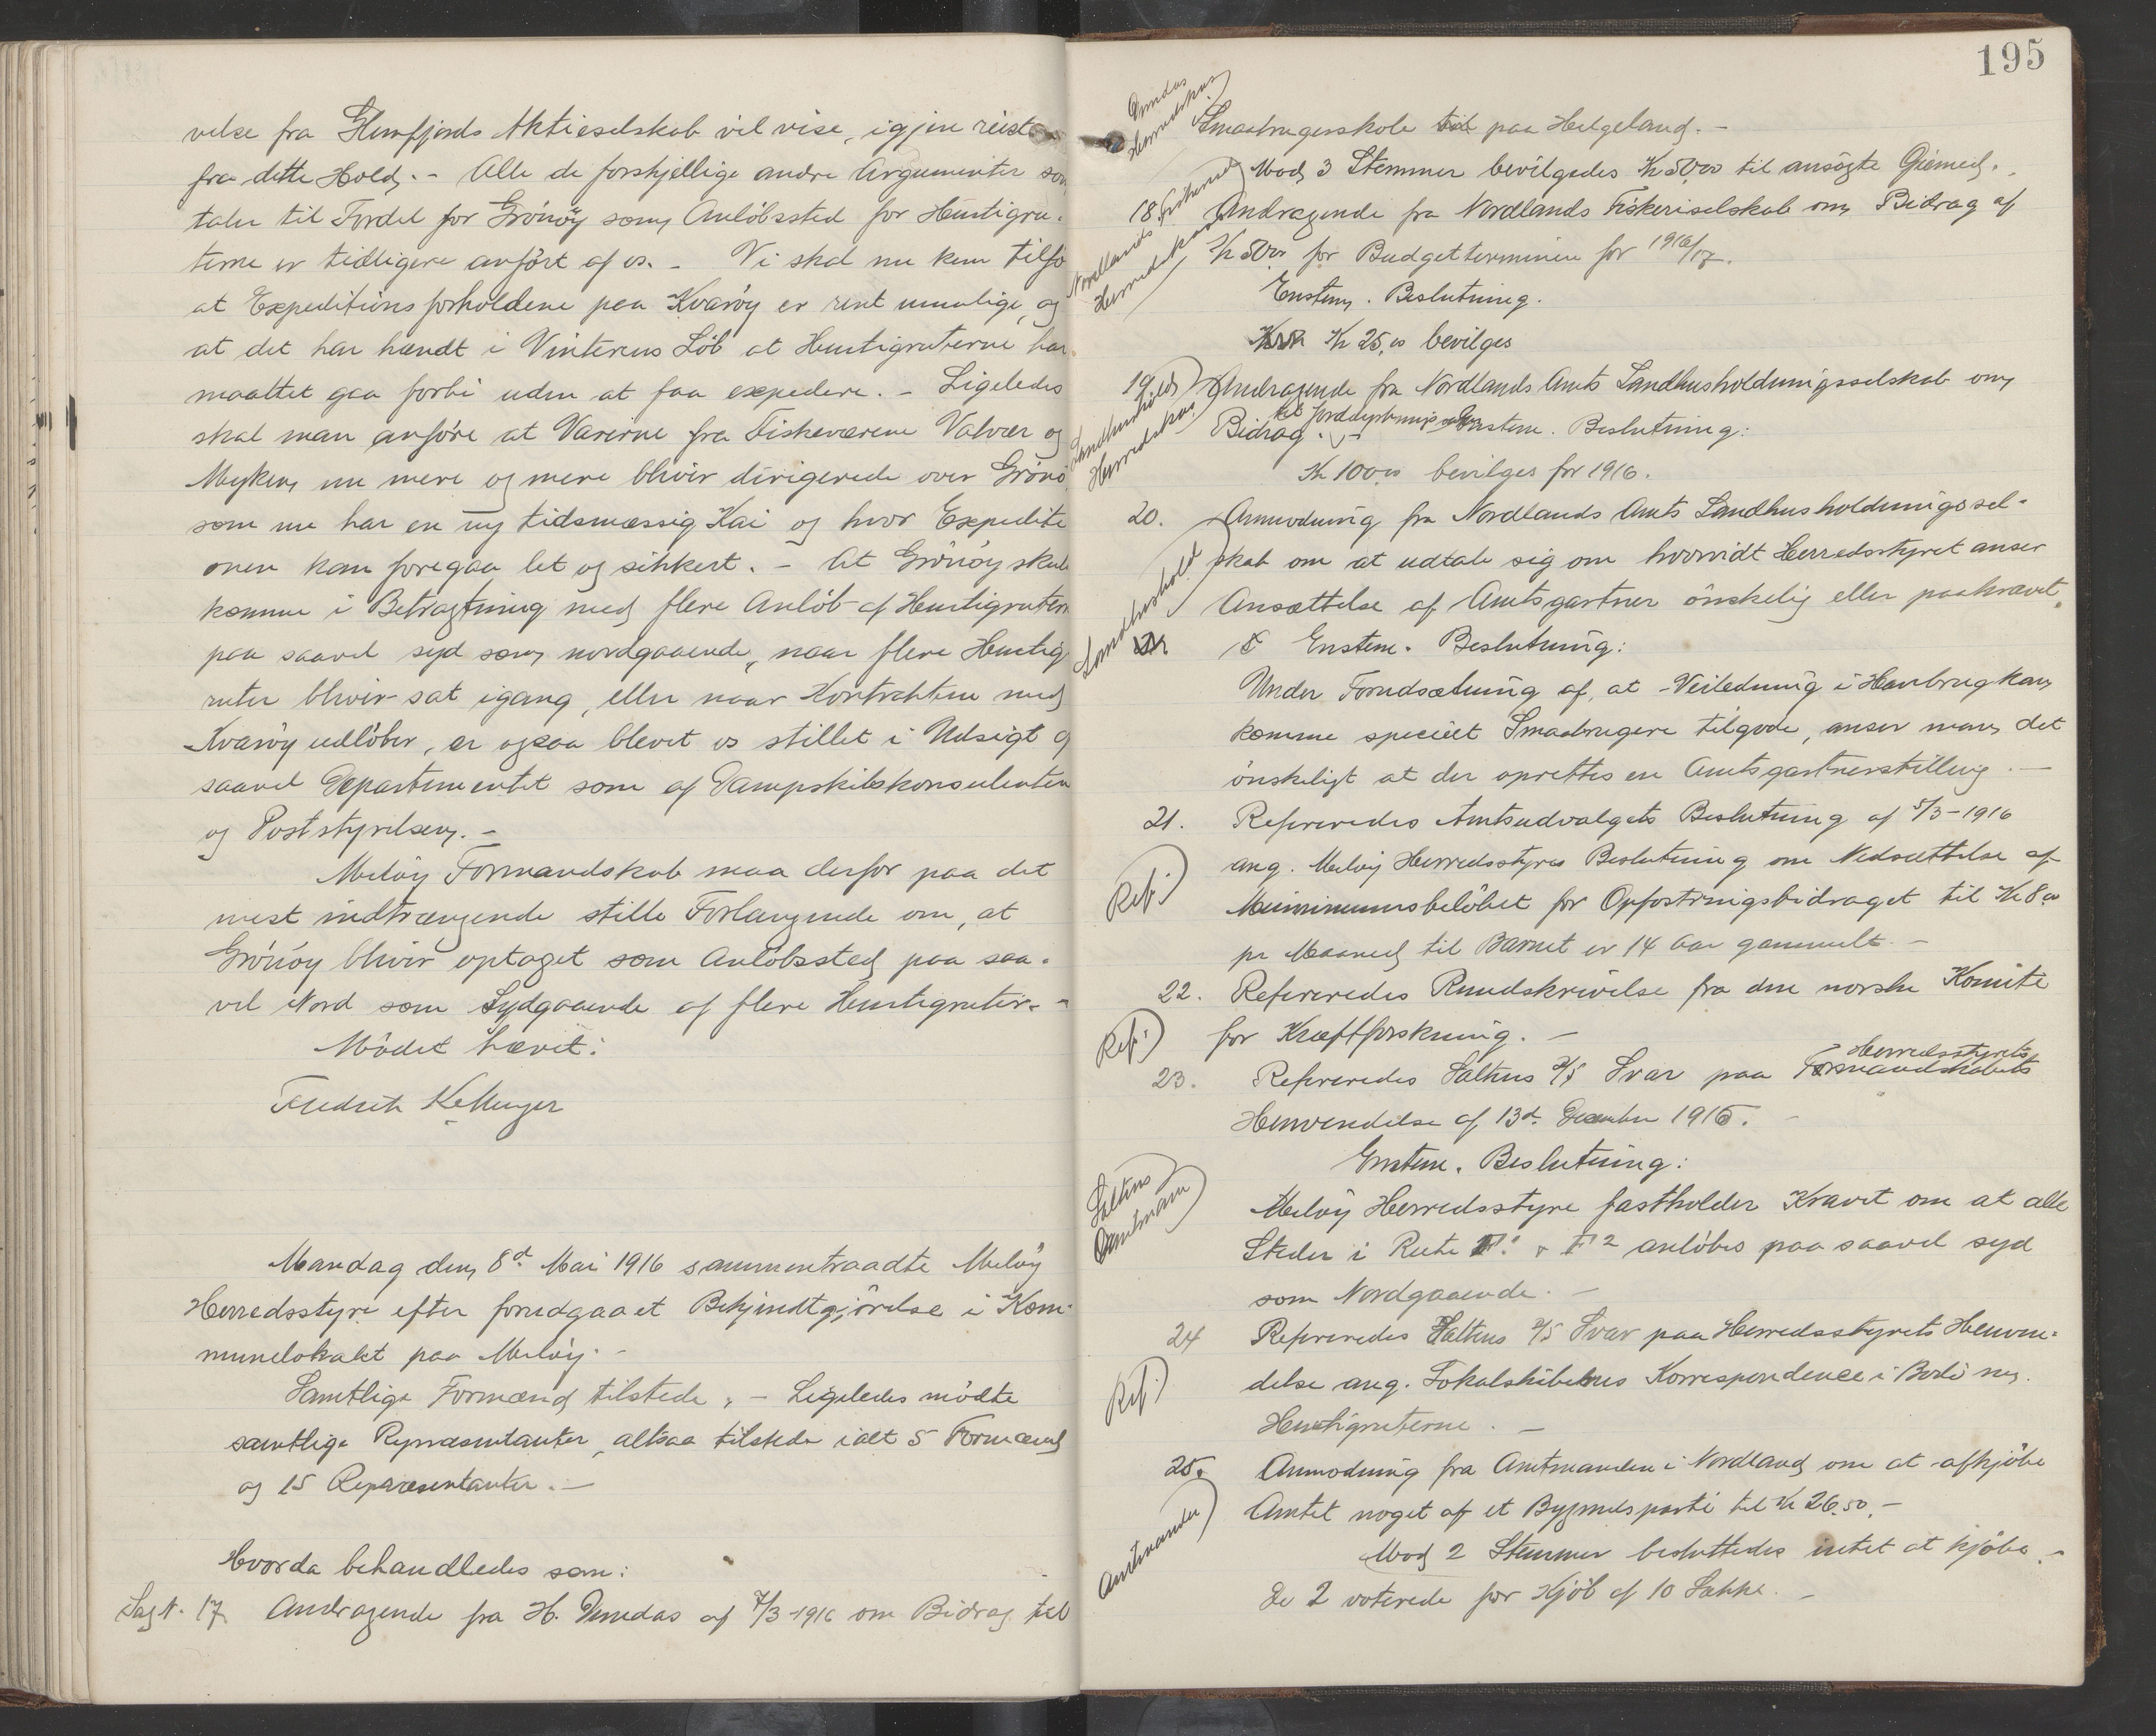 velse fra Glomfjords Aktieselskab vil vise, igjen reist
fra dette Hold. - Alle de forskjellige andre Argumenter som
taler til Fordel for Grönöy som Anlöbssted for Hurtigru-
terne er tidligere anfört af os. - Vi skal nu kun tilfö
at Expeditionsforholdene paa Kvaröy er rent umulige, og
at det har hændt i Vinterens Löb at Hurtigruterne har
maattet gaa forbi uden at faa expedere. - Ligeledes
skal man anföre at Varerne fra Fiskeværene Valvær og
Myken nu mere og mere blivir dirigerede over Grönö
som nu har en ny tidsmæssig Kai og hvor Expedite
onen kan foregaa let og sikkert. - At Grönöy skul
komme i Betragtning med flere Anlöb af Hurtigrutern
paa saavel syd som nordgaaende, naar flere Hurtig
ruter blivir sat igang, eller naar Kontrakten med
Kvaröy udlöber, er ogsaa blevet os stillet i Udsigt af
saavel Departementet som af Dampskibskonsulenten
og Poststyrelsen. -
Melöy Formandskab maa derfor paa det
mest indtrængende stille Forlangende om, at
Grönöy blivir optaget som Anlöbssted paa saa-
vel Nord som Sydgaaende af flere Hurtigruter. -
Mödet hævet:
Fredrik Kelleuger
Mandag den 8d Mai 1916 sammentraadte Melöy
Herredsstyre efter forudgaaet Bekjendtgjörelse i Kom-
munelokalet paa Melöy. -
Samtlige Formænd tilstede, - Ligeledes mödte
samtlige Repræsentanter, altsaa tilstede ialt 5 Formænd
og 15 Repræsentanter. -
Hvorda behandledes som:
Sag N. 17. Andragende fra H. Dundas af 7/3-1916 om Bidrag til
195
Dundas
Herredskas
Smaabrugerskole til paa Helgeland. -
Mod 3 Stemmer bevilgedes Kr 50,00 til ansögte Öiemed.
18. Andragende fra Nordlands Fiskeriselskab om Bidrag af
Nordlands Fiskerisel
Herredskas
Kr 50,00 for Budgetterminen for 1916/17.
Enstem. Beslutning.
Kr 25,00 bevilges
19. Andragende fra Nordlands Amts Landhusholdningsselskab om
Landhushold
Herredskas
Bidrag til Jorddyrkning. Enstem. Beslutning:
Kr 100,00 bevilges for 1916.
20. Anmodning fra Nordlands Amts Landhusholdningssel-
skab om at udtale sig om hvorvidt Herredsstyret anser
Ansættelse af Amtsgartner önskelig eller paakrævet.
Landhushold
Enstem. Beslutning:
Under Forudsætning af, at Veiledning i Havebrug kan
komme specielt Smaabrugere tilgode, anser man det
önskeligt at der oprettes en Amtsgartnerstilling. -
21. Refereredes Amtsudvalgets Beslutning af 5/3-1916
ang. Melöy Herredsstyres Beslutning om Nedsættelse af
Ref:
Minimumsbelöbet for Opfostringsbidraget til Kr 8,00
pr Maaned til Barnet er 14 Aar gammelt. -
22. Refereredes Rundskrivelse fra den norske Komite
Ref:
for Kræftforskning. -
23. Refereredes Saltens D/S Svar paa Formandskabets Herredsstyrets
Henvendelse af 13d December 1915. -
Enstem. Beslutning:
Saltens
Amtmann
Melöy Herredsstyre fastholder Kravet om at alle
Steder i Rute F1 & F2 anlöbes paa saavel syd
som Nordgaaende. -
24 Refereredes Saltens D/S Svar paa Herredsstyrets Henven-
Ref:
delse ang. Lokalskibenes Korrespondence i Bodö med
Hurtigruterne. -
25. Anmodning fra Amtmanden i Nordland om at afkjöbe
Amtmanden
Amtet noget af et Bygmelsparti til Kr 26.50. -
Mod 2 Stemmer besluttedes intet at kjöbe. -
De 2 voterede for Kjöb af 10 Sække. -